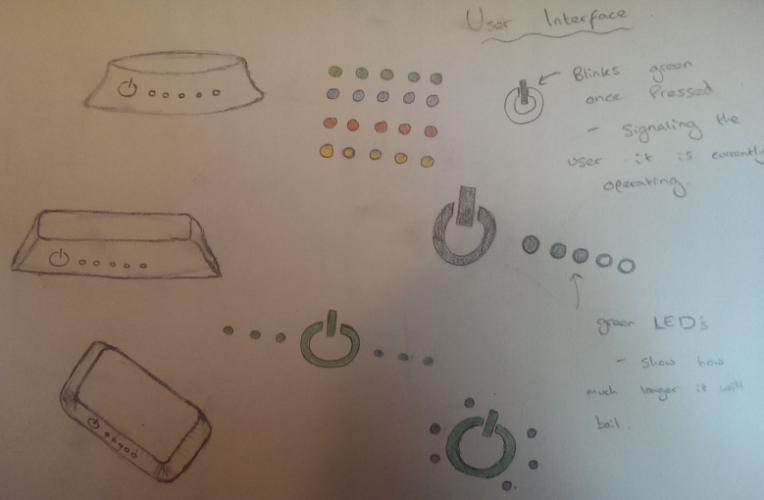 User Interface
Blinks green
once Pressed
- Signaling the
user it is currently
operating.
green LED's
- Show how
much longer it will
bail.